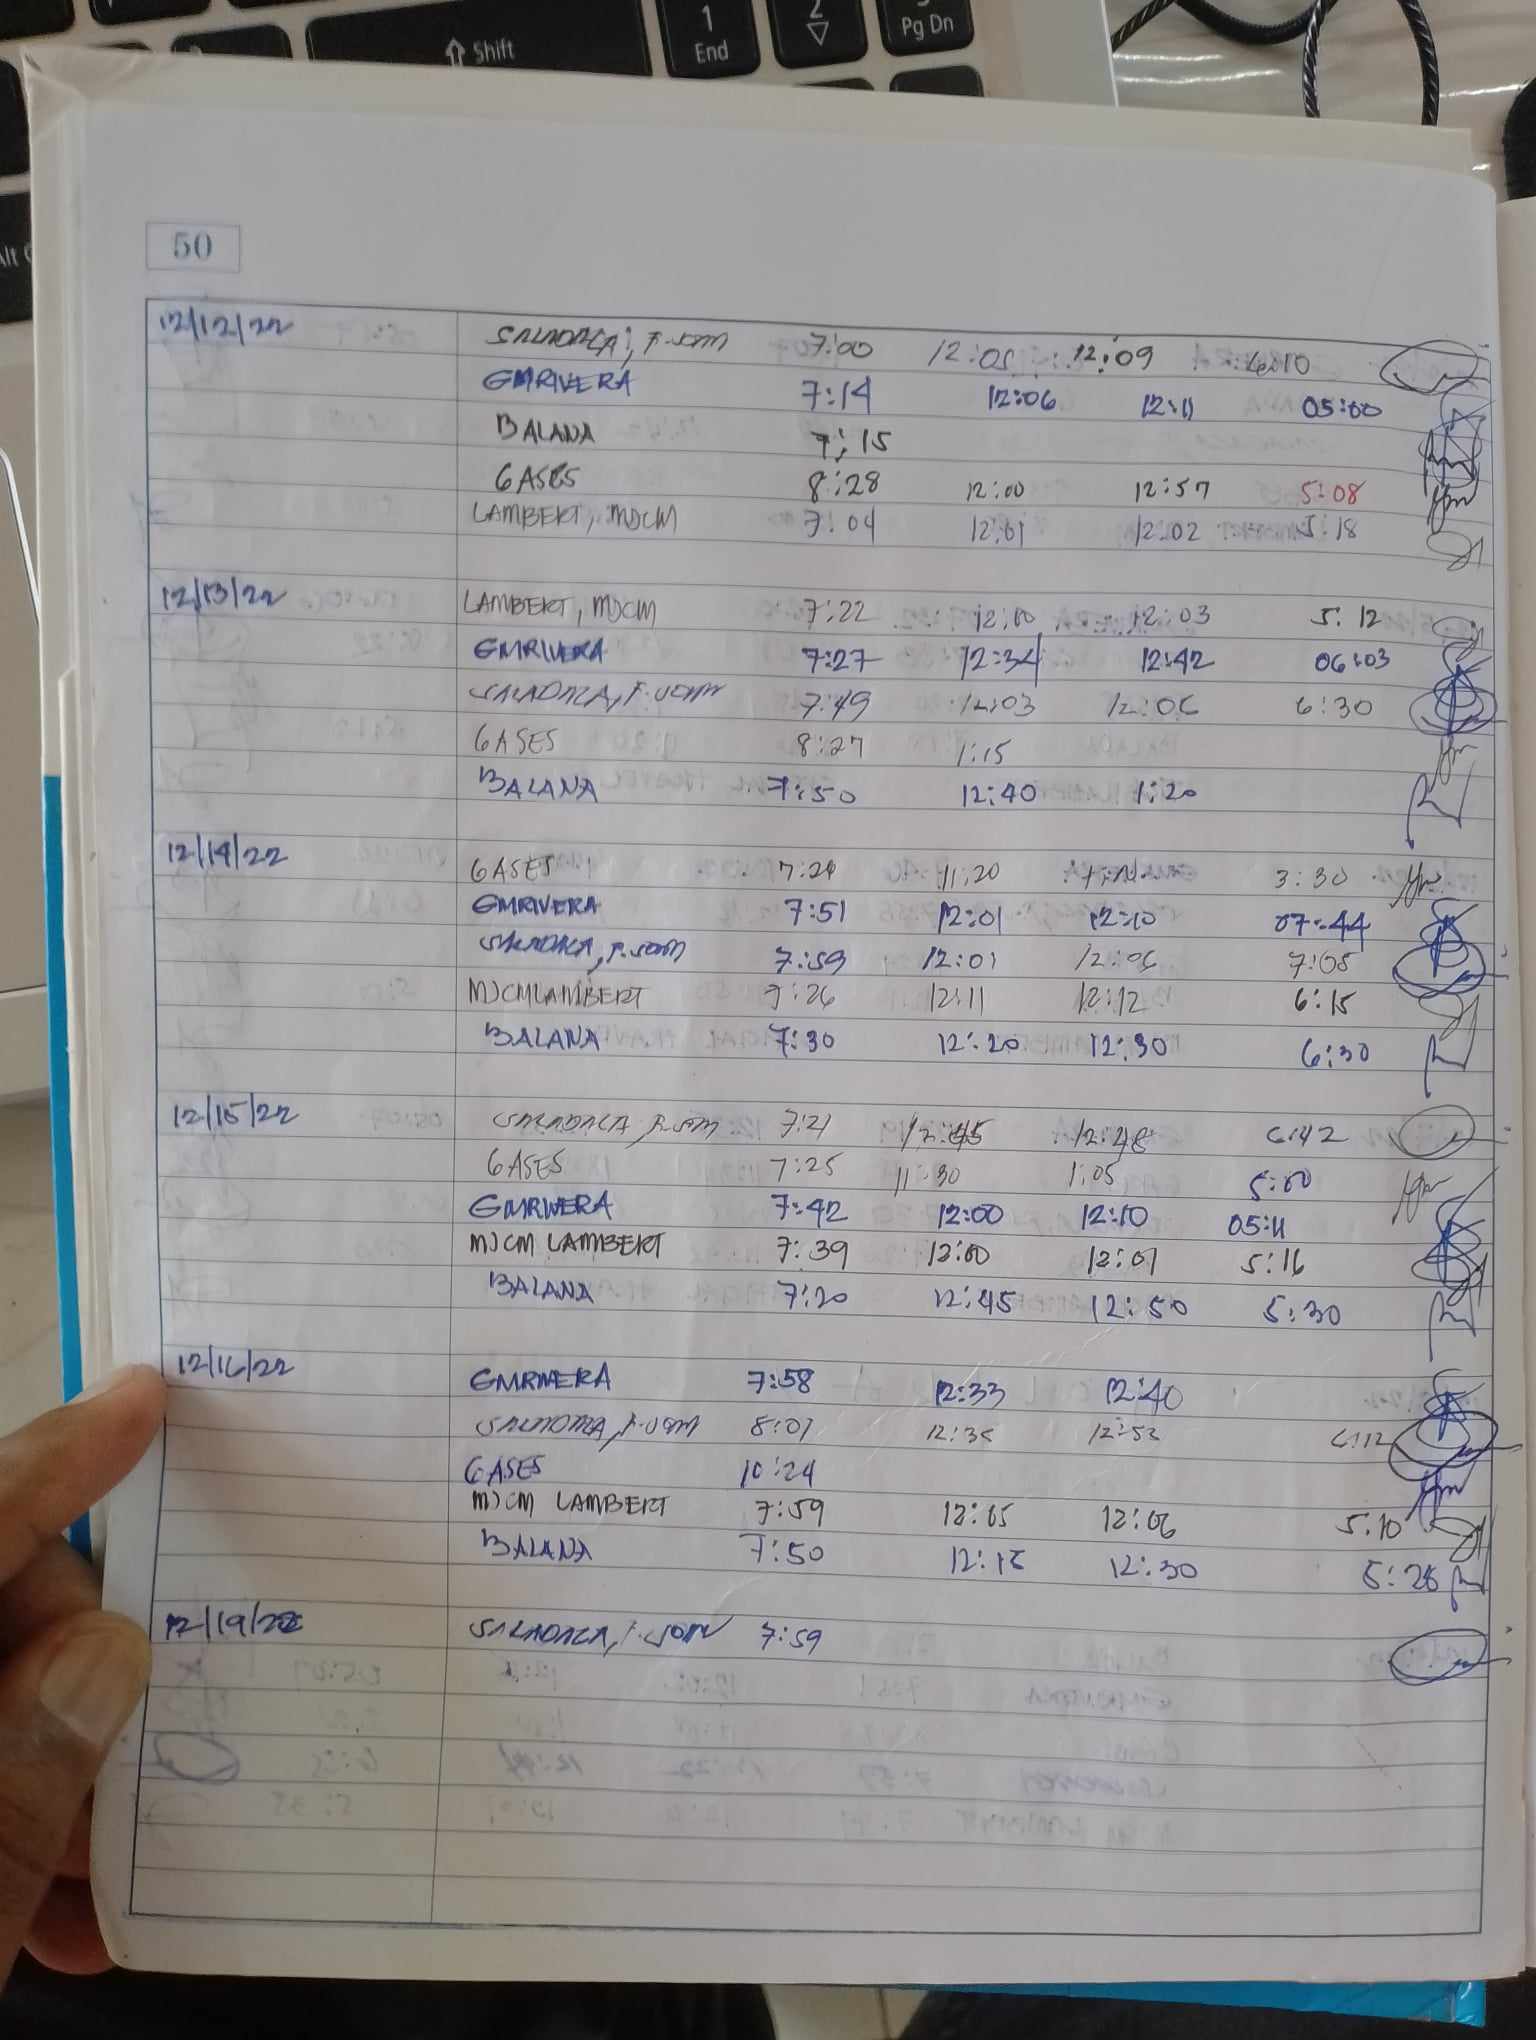 Shift
1
End
2
Pg Dn
50
12/12/22 7:00 12:09 6:10
GMRIVERA 7:14 12:06 12:11 05:00
BALANA 7:15
GASES 8:28 12:00 12:57 5:08
LAMBERT, MJCM 7:04 12:01 12:02 5:18
12/13/22 LAMBERT, MJCM 7:22 12:00 12:03 5:12
GMRIVERA 7:27 12:34 12:42 06:03
7:49 12:03 12:06 6:30
GASES 8:27 1:15
BALANA 7:50 12:40 1:20
12/14/22 GASES 11:20 3:30
GMRIVERA 7:51 12:01 12:10 07:44
7:59 12:01 12:06 7:05
MJCMLAMBERT 12:11 12:12 6:15
BALANA 7:30 12:20 12:30 6:30
12/15/22 7:21 12:45 12:48 6:42
GASES 7:25 11:30 1:05 5:00
GMRIVERA 7:42 12:00 12:10 05:11
MJCM LAMBERT 7:39 12:00 12:01 5:16
BALANA 7:20 12:45 12:50 5:30
12/16/22 GMRIVERA 7:58 12:33 12:40
8:07 6:12
GASES 10:24
MJCM LAMBERT 7:59 12:05 12:06 5:10
BALANA 7:50 12:30
12/19/22 7:59